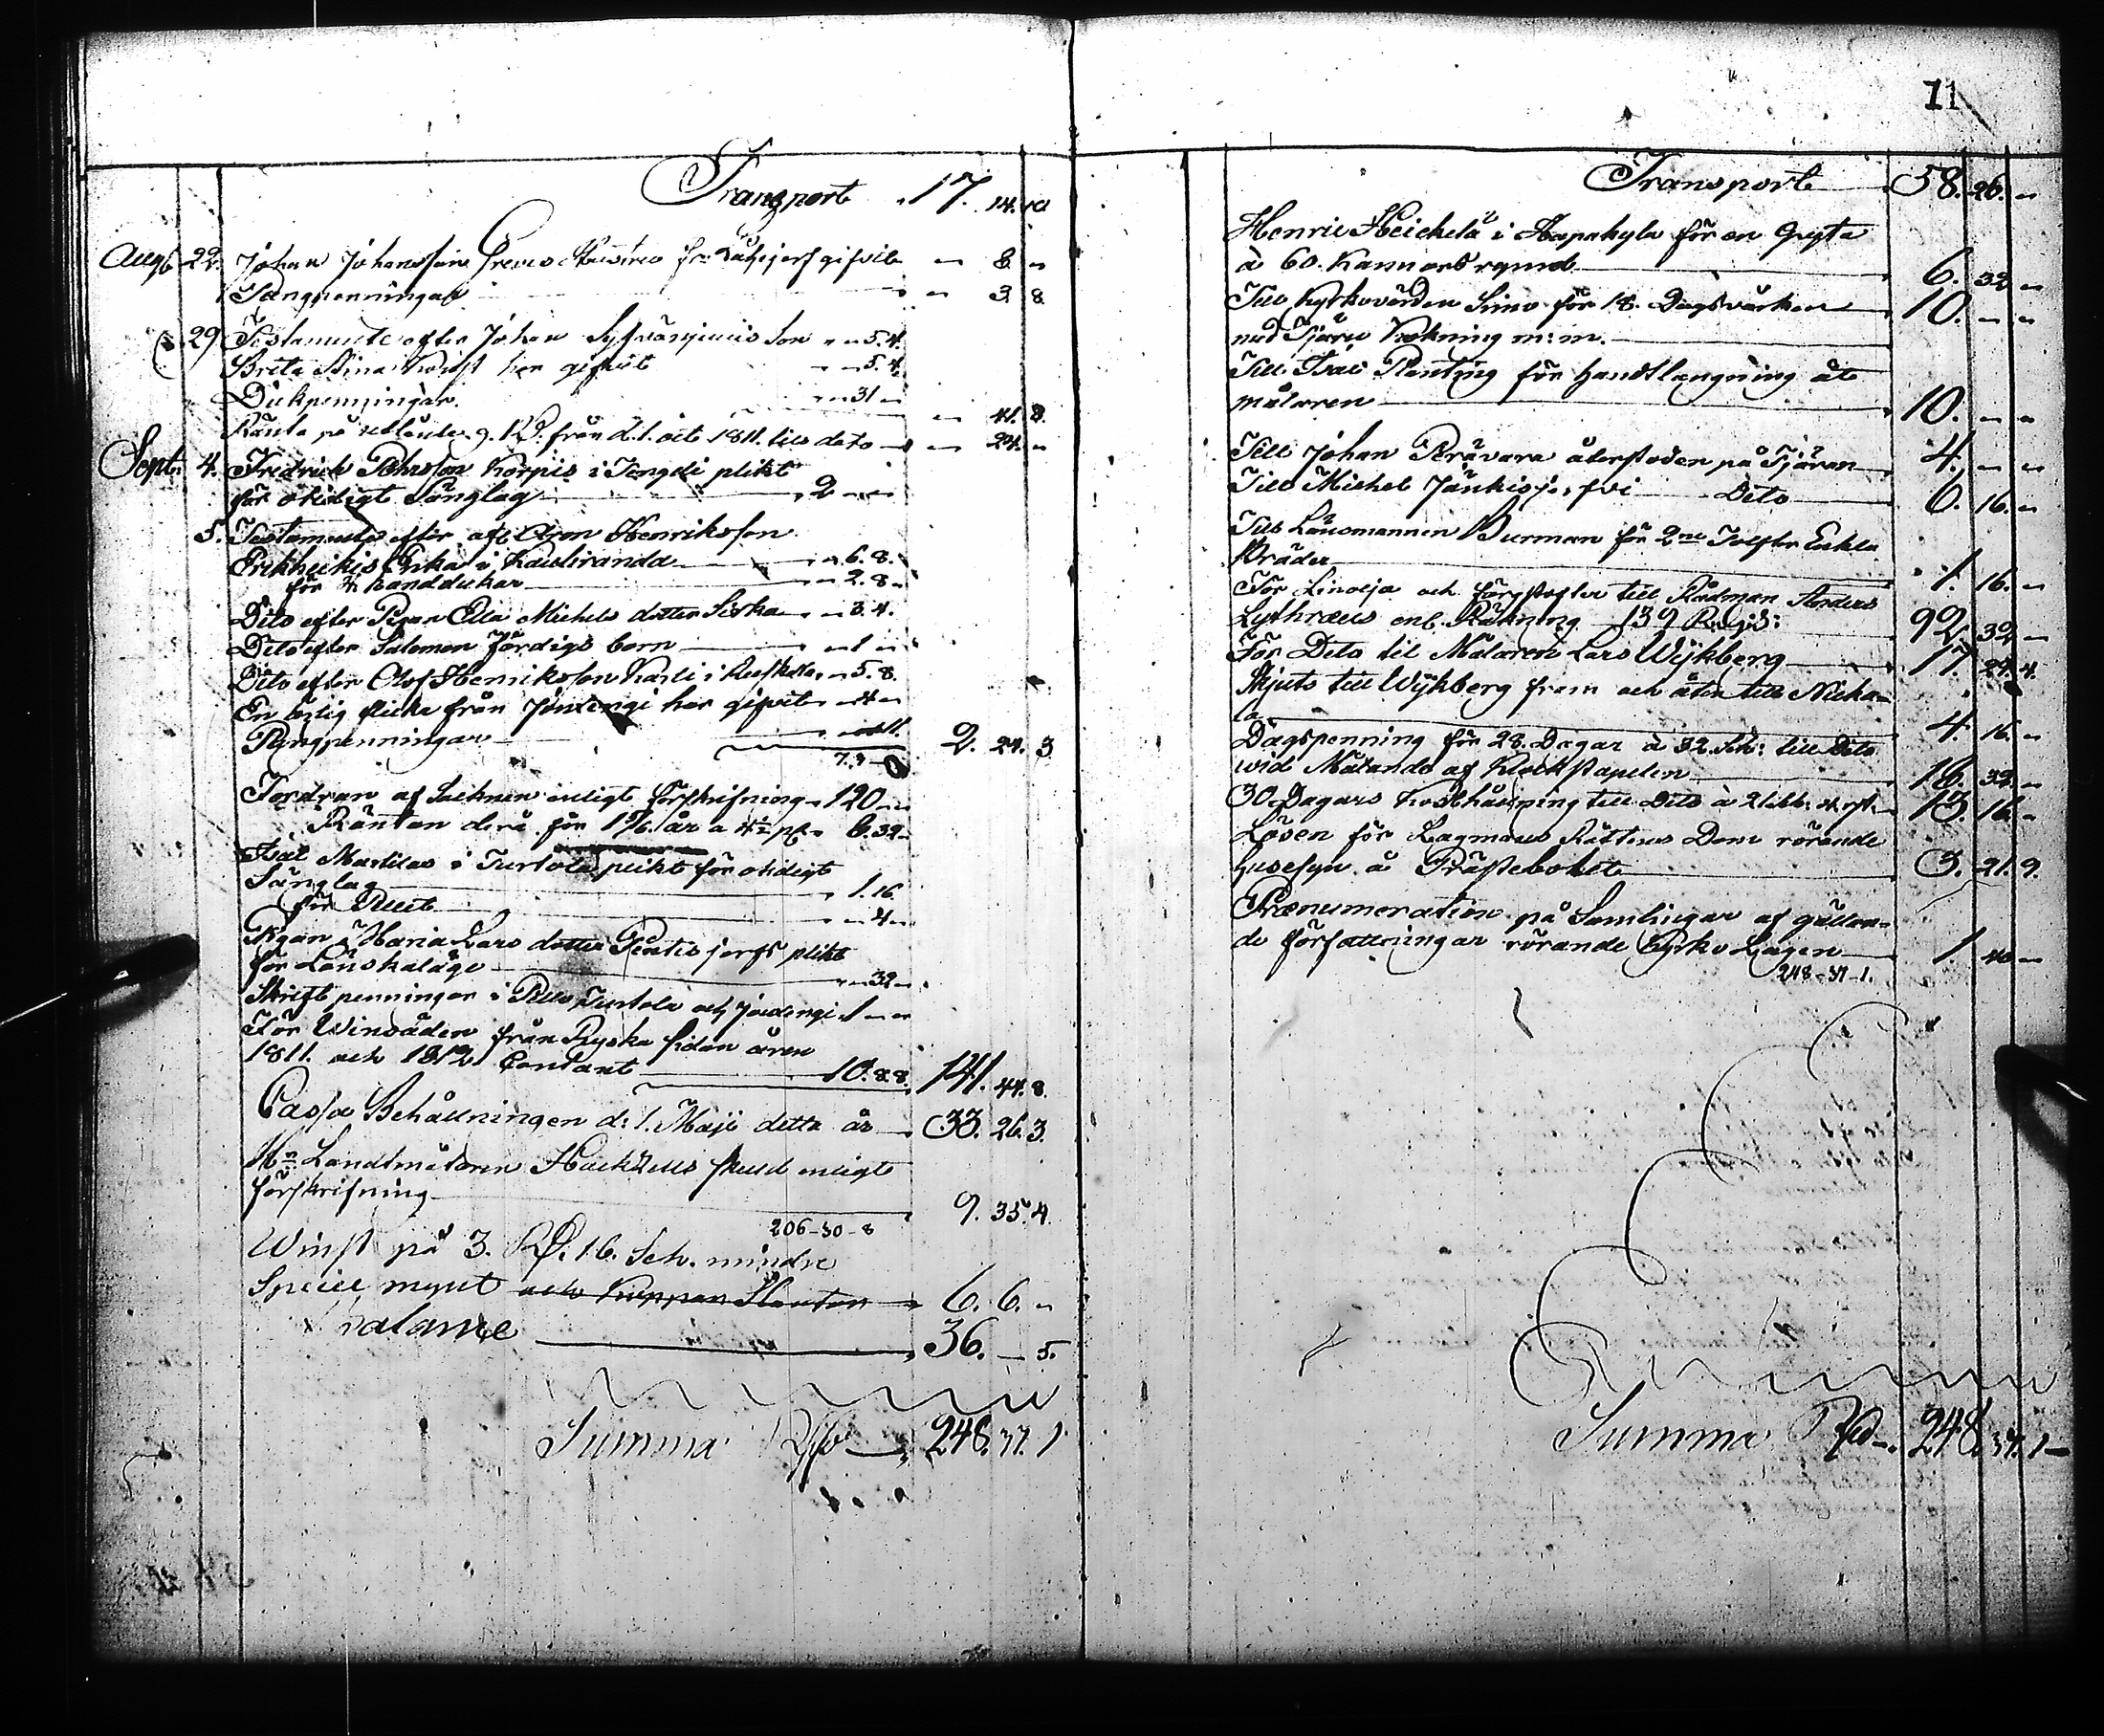 11
Transport 17. 14. 10
Augt 22. Johan Johansson Hustru fr. gifvit „ 8 „
Pengpenningar „ 3. 8
29 Testamente efter Johan Son „ 5. 4.
Brita Stina har gifvit „ 5. 4.
Dickpenningar. „ 31 „
„ 41. 8.
Ränta på 9. RD. från d. 1. oct 1811. till dato „ 24. „
Sept. 4. Fredrich Johansson Korpus i Tengeli plikt
för otidigt Sänglag 2 „ „
5. Testamente efter afl. Aron Henriksson
Erkheikis Erika i Kauliranda „ 6. 8.
för 4 handdukar „ 2. 8 „
Dito efter Pigan Ella Michels dotter Siska „ 3. 4.
Dito efter Salomon Jördigs barn „ 1 „
Dito efter Olof Henriksson Karli i „ 5. 8.
En ärlig flicka från Jouxengi har gifvit „ 4 „
Pengpenningar
7. 3 2. 24. 3
Fordran af Socknen enligt förskrifning 120 „ „
Räntan derå för 1 år a 4½ pCt 6. 32 „
Isac Martilas i Turtola plikt för otidigt
Sänglag 1. 16
för Qvest „ 4 „
Pigan Maria Lars dotter Pentisjerfs plikt
för Lönskaläge „ 32 „
Skriftpenningar i Pello, Turtola och Jouxengi 1 „ „
För Winsåden från Ryska sidan åren
1811. och 1812. Contant 10. 8. 8. 141. 44. 8.
Cassa Behållningen d: 1. Maji detta år 33. 26. 3.
Hr Landtmätaren Hackzells skuld enligt
förskrifning 9. 35. 4
206-30-8
Winst på 3. RD. 16. Sch. mindre
Specie mynt och Koppar Slantar 6. 6. „
Balance 36. — 5.
Summa Rd 248. 37. 1
Transport 58. 26. „
Henric Heickelä i Haapakylä för en Gryta
à 60. Kannors rymd 6. 32 „
Till Kyrkovärden Simo för 18. Dagsvärken 10. „ „
med Tjäru Kokning m: m.
Till Isac Planting för handtlangning åt
målaren 10. „ „
Till Johan Perävara återstoden på Tjäran 4. „ „
Till Michel Jänkisjerfvi Dito 6. 16. „
Till Länsmannen Burman för 2ne Tolfter Enkla
Bräder 1. 16. „
För Linolja och färgstofter till Rådman Anders
Lythræus enl. Räkning 139 RGs: 92. 32 „
För Dito til Målaren Lars Wijkberg 17. 24. 4.
Skjuts till Wijkberg fram och åter till Nicka-
la 4. 16. „
Dagspenning för 28. Dagar à 32. Sch: till Dito
wid Målande af Klockstapelen 18. 32. „
30. Dagars Kosthållning till Dito à 21 sch: 4 rst. 13. 16. „
Lösen för Lagmans Rättens Dom rörande
husesyn å Prästebolet 3. 21. 9.
Prænumeration på Samlingar af gällan-
de författningar rörande Kyrko Lagen 1. 40 „
248-37-1.
Summa Rd 248. 37. 1